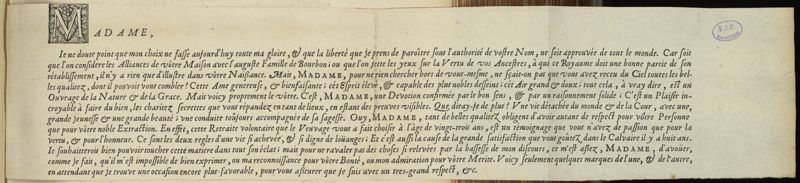 MADAME,
Ie ne doute point que mon choix ne fasse aujourd'huy toute ma gloire, & que la liberté que je prens de paroître sous l'authorité de vostre Nom, ne soit approuvée de tout le monde. Car soit
que l'on considère les Alliances de vôtre Maison avec l'auguste Famille de Bourbon; ou que l'on jette les yeux sur la Vertu de vos Ancestres, à qui ce Royaume doit une bonne partie de son
rétablissement, il n'y a rien que d'illustre dans vôtre Naissance. Mais, MADAME, pour ne rien chercher hors de vous-mesme, ne sçait-on pas que vous avez receu du Ciel toutes les bel-
les qualitez, dont il pouvoit vous combler? Cette Ame genereuse, & bienfaisante; cét Esprit élevé, & capable des plus nobles desseins; cét Air grand & doux; tout cela, à vray dire, est un
Ouvrage de la Nature & de la Grace. Mais voicy proprement le vôtre. C'est, MADAME, une Devotion confirmée par le bon sens, & par un raisonnement solide; C'est un Plaisir in-
croyable à faire du bien, les charitez secrettes que vous répandez en tant de lieux, en estant des preuves visibles. Que diray-je de plus? Vne vie détachée du monde & de la Cour, avec une
grande jeunesse & une grande beauté; vne conduite toûjours accompagnée de sa sagesse. Ouy, MADAME, tant de belles qualitez obligent d'avoir autant de respect pour vôtre Personne
que pour vôtre noble Extraction. En effét, cette Retraite volontaire que le Veuvage vous a fait choisir à l'âge de vingt-trois ans, est un témoignage que vous n'avez de passion que pour la
vertu, & pour l'honneur. Ce sont les deux regles d'une vie si achevée, & si digne de loüanges; Et c'est aussi la cause de la grande satisfaction que vous goûtez dans le Calvaire il y a huit ans.
Ie souhaitterois bien pouvoir toucher cette matiere dans tout son éclat: mais pour ne ravaler pas des choses si relevées par la bassesse de mon discours, ce m'est assez, MADAME, d'avoüer,
comme je fais, qu'il m'est impossible de bien exprimer, ou ma reconnoissance pour vôtre Bonté, ou mon admiration pour vôtre Merite. Voicy seulement quelques marques de l'une, & de l'autre,
en attendant que je trouve une occasion encore plus favorable, pour vous asseurer que je suis avec un tres-grand respect, &c.